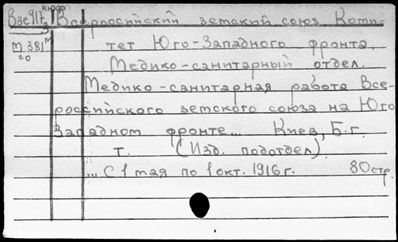 Всероссийский земский союз. Коми-
тет Юго-Западного фронта.
М 381
со
Медико-санитарный отдел.
Медико-санитарная работа Все-
российского земского союза на Юго
Западном фронте... Киев, Б.г.
т. (Изд. подотдел).
... С 1 мая по 1 окт. 1916 г. 80 стр.